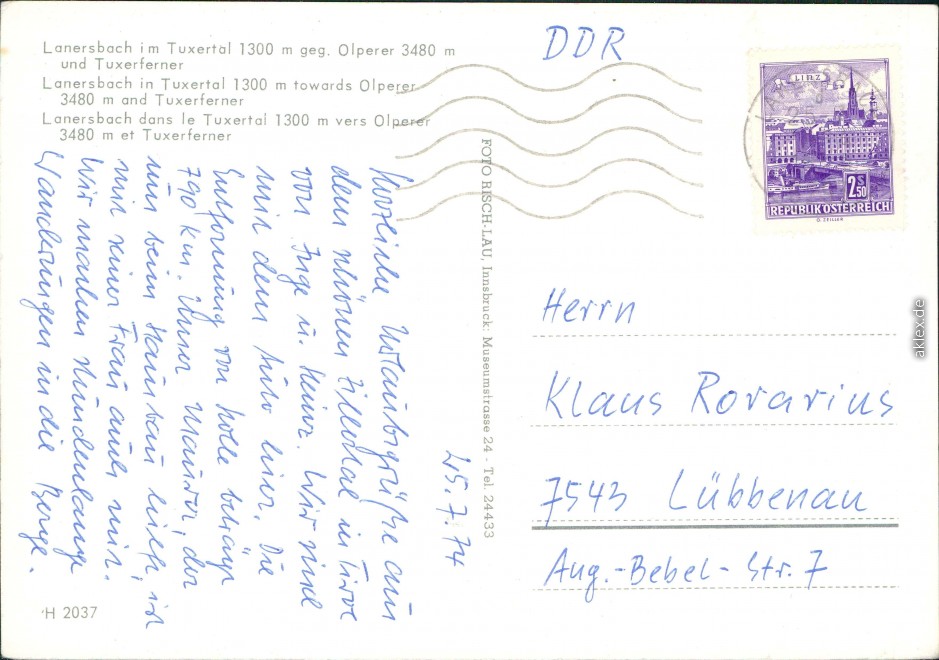 Lanersbach im Tuxertal 1300 m geg. Olperer 3480 m
und Tuxerferner
Lanersbach in Tuxertal 1300 m towards Olperer
3480 m and Tuxerferner
Lanersbach dans le Tuxertal 1300 m vers Olperer
3480 m et Tuxerferner
DDR
LINZ
2 S 50
REPUBLIK ÖSTERREICH
25.7.74
Herzliche Urlaubsgrüße aus
dem schönen Zillertal in Tirol
von Inge u. Heinz. Wir sind
mit dem Auto hier. Die
Entfernung von Halle beträgt
790 km. Unser Maurer, der
uns beim Hausbau hielft, ist
mit seiner Frau auch mit.
Wir machen stundenlange
Wanderungen in die Berge.
FOTO RISCH-LAU, Innsbruck: Museumstrasse 24 - Tel. 24433
Herrn
Klaus Rovarius
7543 Lübbenau
Aug.-Bebel-Str. 7
H 2037
aklex.de